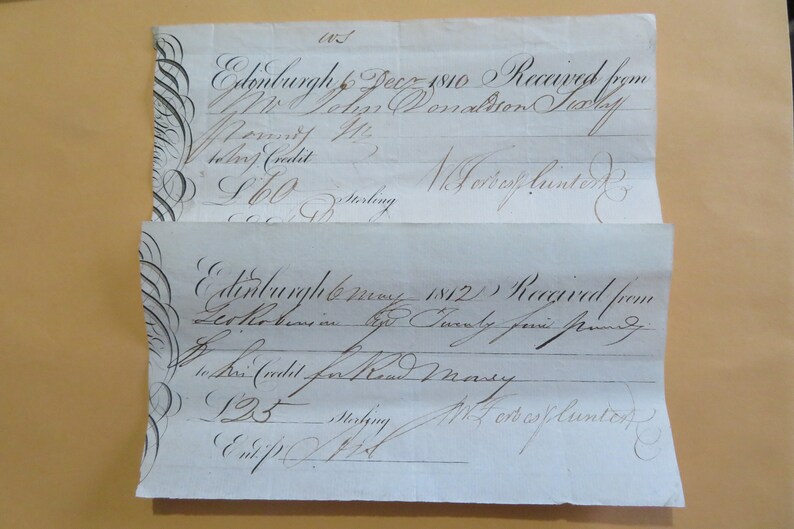 ws
Edinburgh 6 Decr 1810 Received from
Mr John Donaldson Sixty
Pounds
to his Credit
£60 Sterling Wm Forbes J Hunter & Co
Edinburgh 6 May 1812 Received from
Geo Robinson Twenty five pounds
to his Credit for Road Money
£25 Sterling Wm Forbes J Hunter & Co
Entd